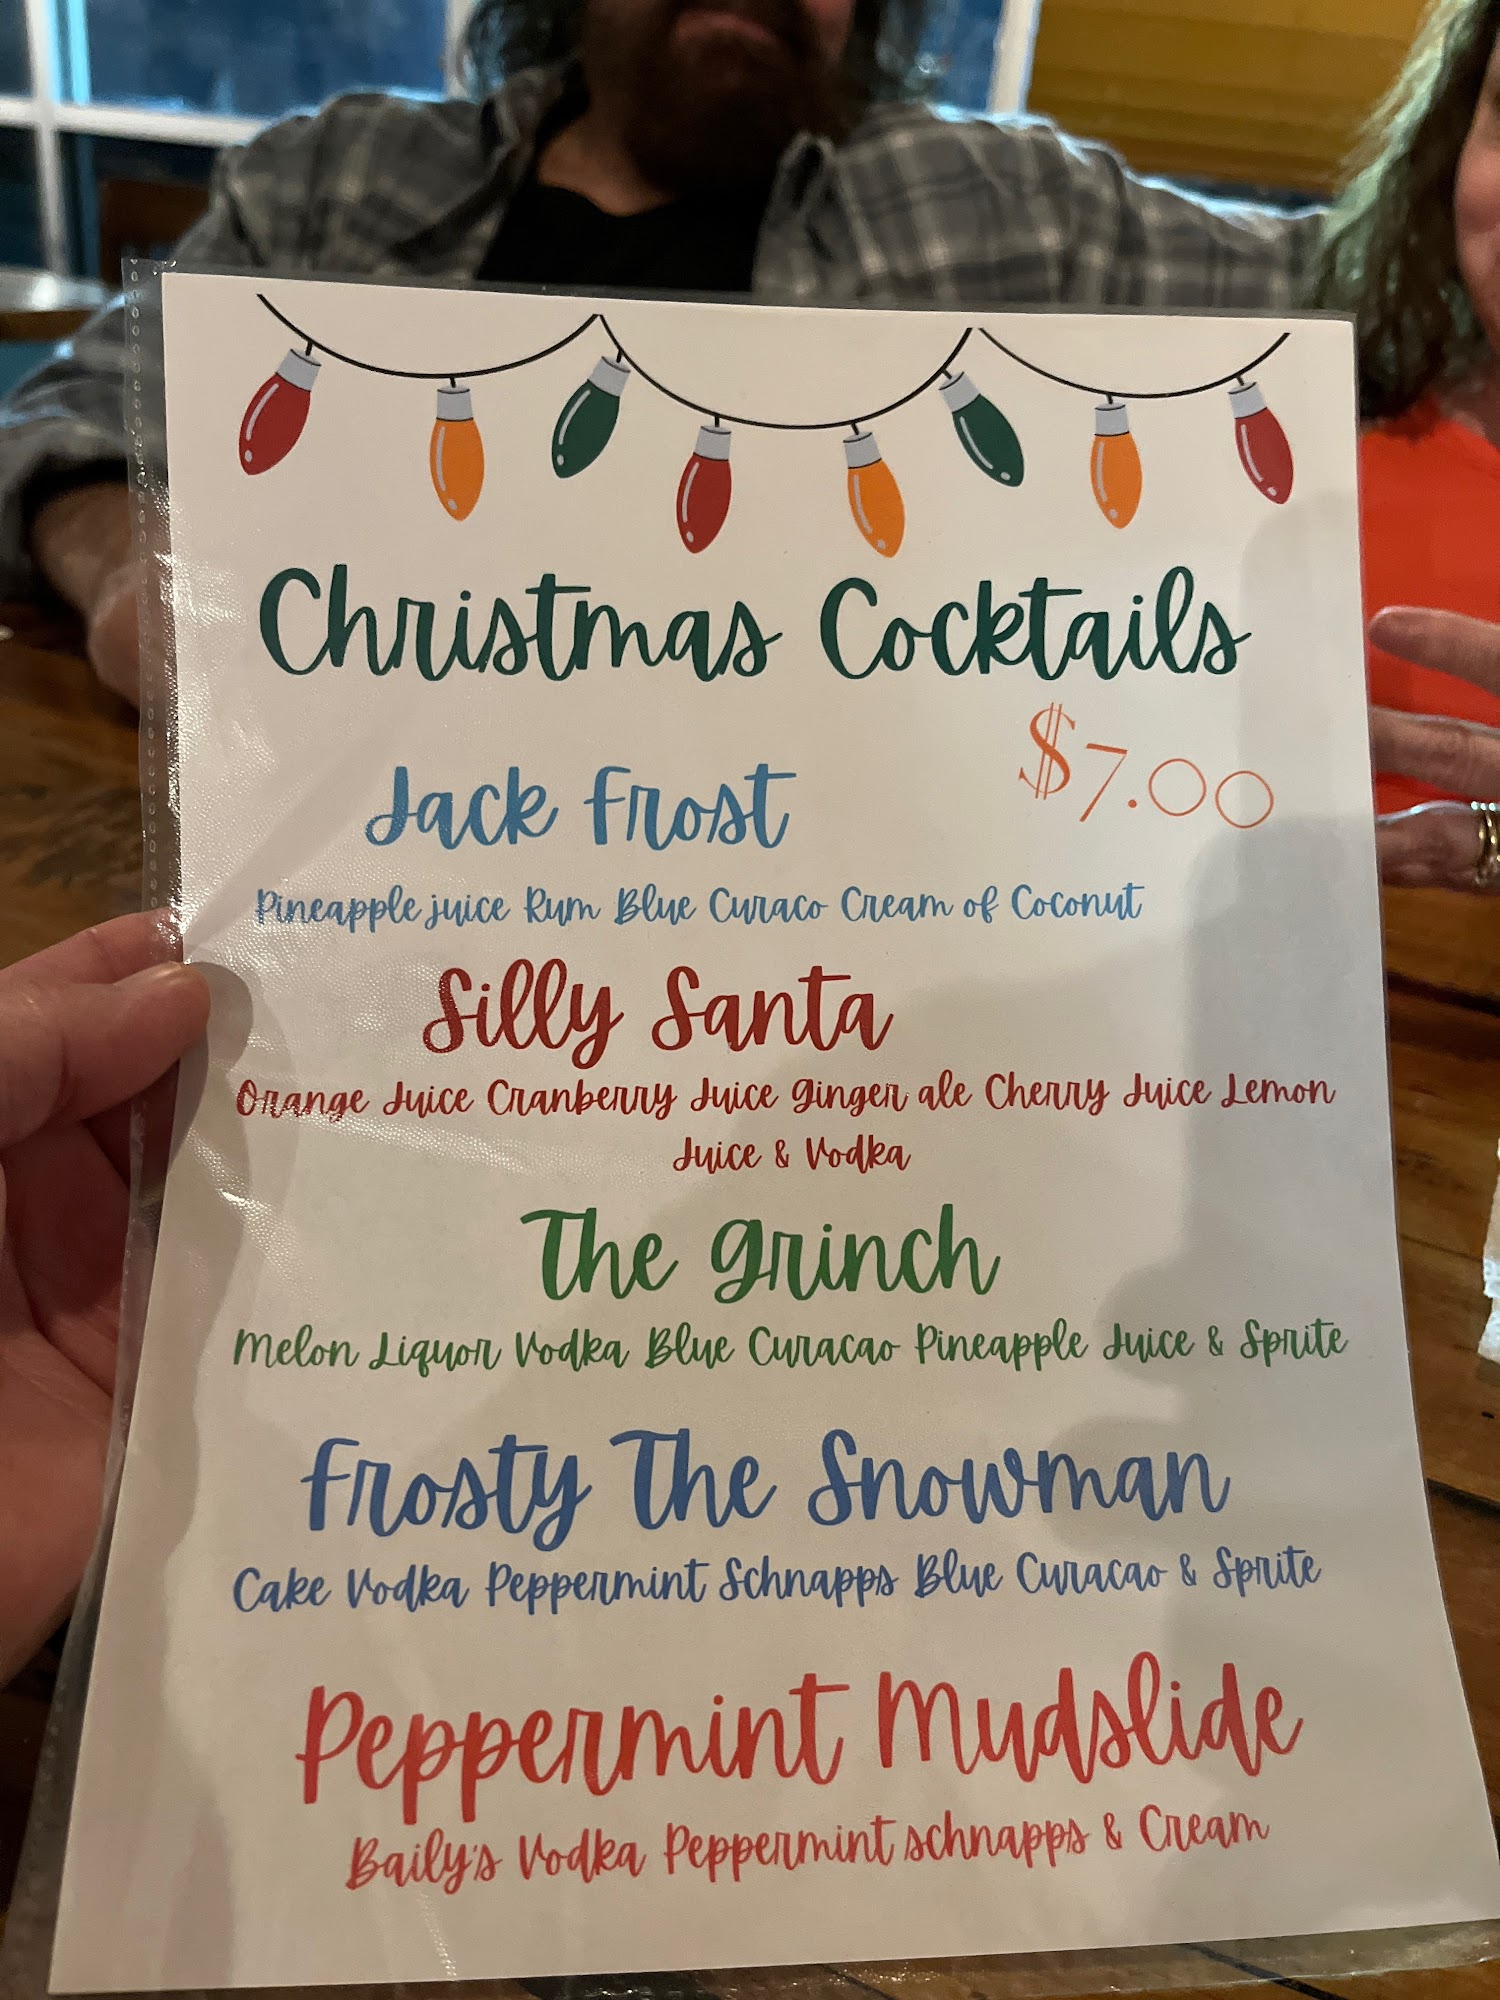 Christmas Cocktails
$7.00
Jack Frost
Pineapple juice Rum Blue Curaco Cream of Coconut
Silly Santa
Orange Juice Cranberry Juice Ginger ale Cherry Juice Lemon
Juice & Vodka
The Grinch
Melon Liquor Vodka Blue Curacao Pineapple Juice & Sprite
Frosty The Snowman
Cake Vodka Peppermint Schnapps Blue Curacao & Sprite
Peppermint Mudslide
Baily's Vodka Peppermint schnapps & Cream